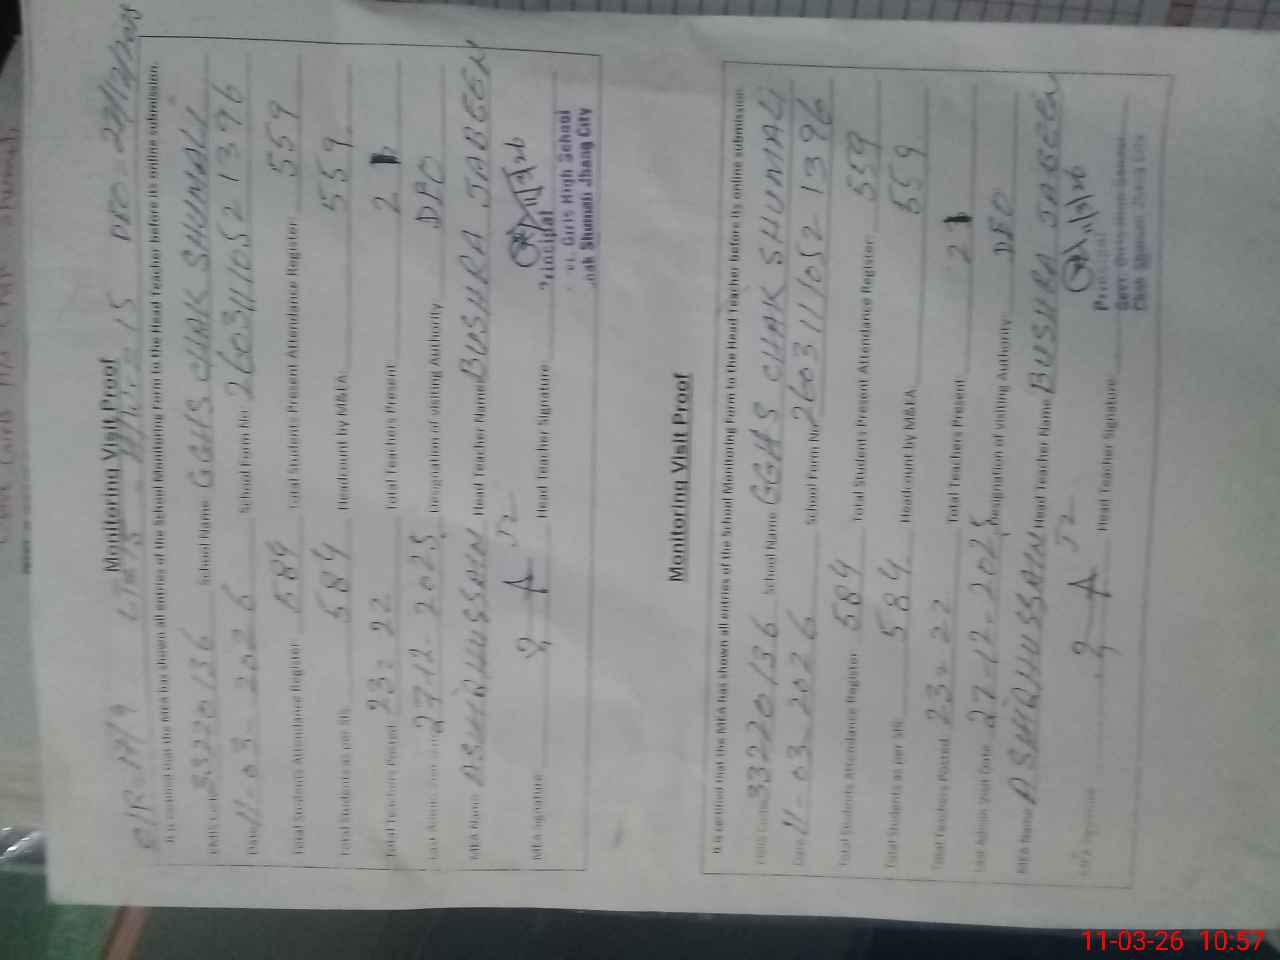 Monitoring Visit Proof
It is certified that the MEA has shown all entries of the School Monitoring Form to the Head Teacher before its online submission.
EMIS Code 33220136 School Name GGHS CHAK SHUMALI
Date 11-03-2026 School Form No 2603111052 1396
Total Students Attendance Register: 584 Total Students Present Attendance Register: 559
Total Students as per SIS 584 Headcount by M&EA: 559
Total Teachers Posted 23 = 22 Total Teachers Present: 2
27-12-2025 Designation of visiting Authority DEO
MEA Name ASHIQ HUSSAIN Head Teacher Name BUSHRA JABEEN
MEA Signature Head Teacher Signature: 11/3/26
Principal
Girls High School
Shumali Jhang City
Monitoring Visit Proof
It is certified that the MEA has shown all entries of the School Monitoring Form to the Head Teacher before its online submission.
EMIS Code 33220136 School Name GGHS CHAK SHUMALI
Date 11-03-2026 School Form No 2603111052 1396
Total Students Attendance Register 584 Total Students Present Attendance Register: 559
Total Students as per SIS 584 Headcount by M&EA 559
Total Teachers Posted 23 = 22 Total Teachers Present 2
Last Admin Visit Date 27-12-2025 Designation of visiting Authority: DEO
MEA Name ASHIQ HUSSAIN Head Teacher Name BUSHRA JABEEN
Head Teacher Signature 11/3/26
11-03-26 10:57